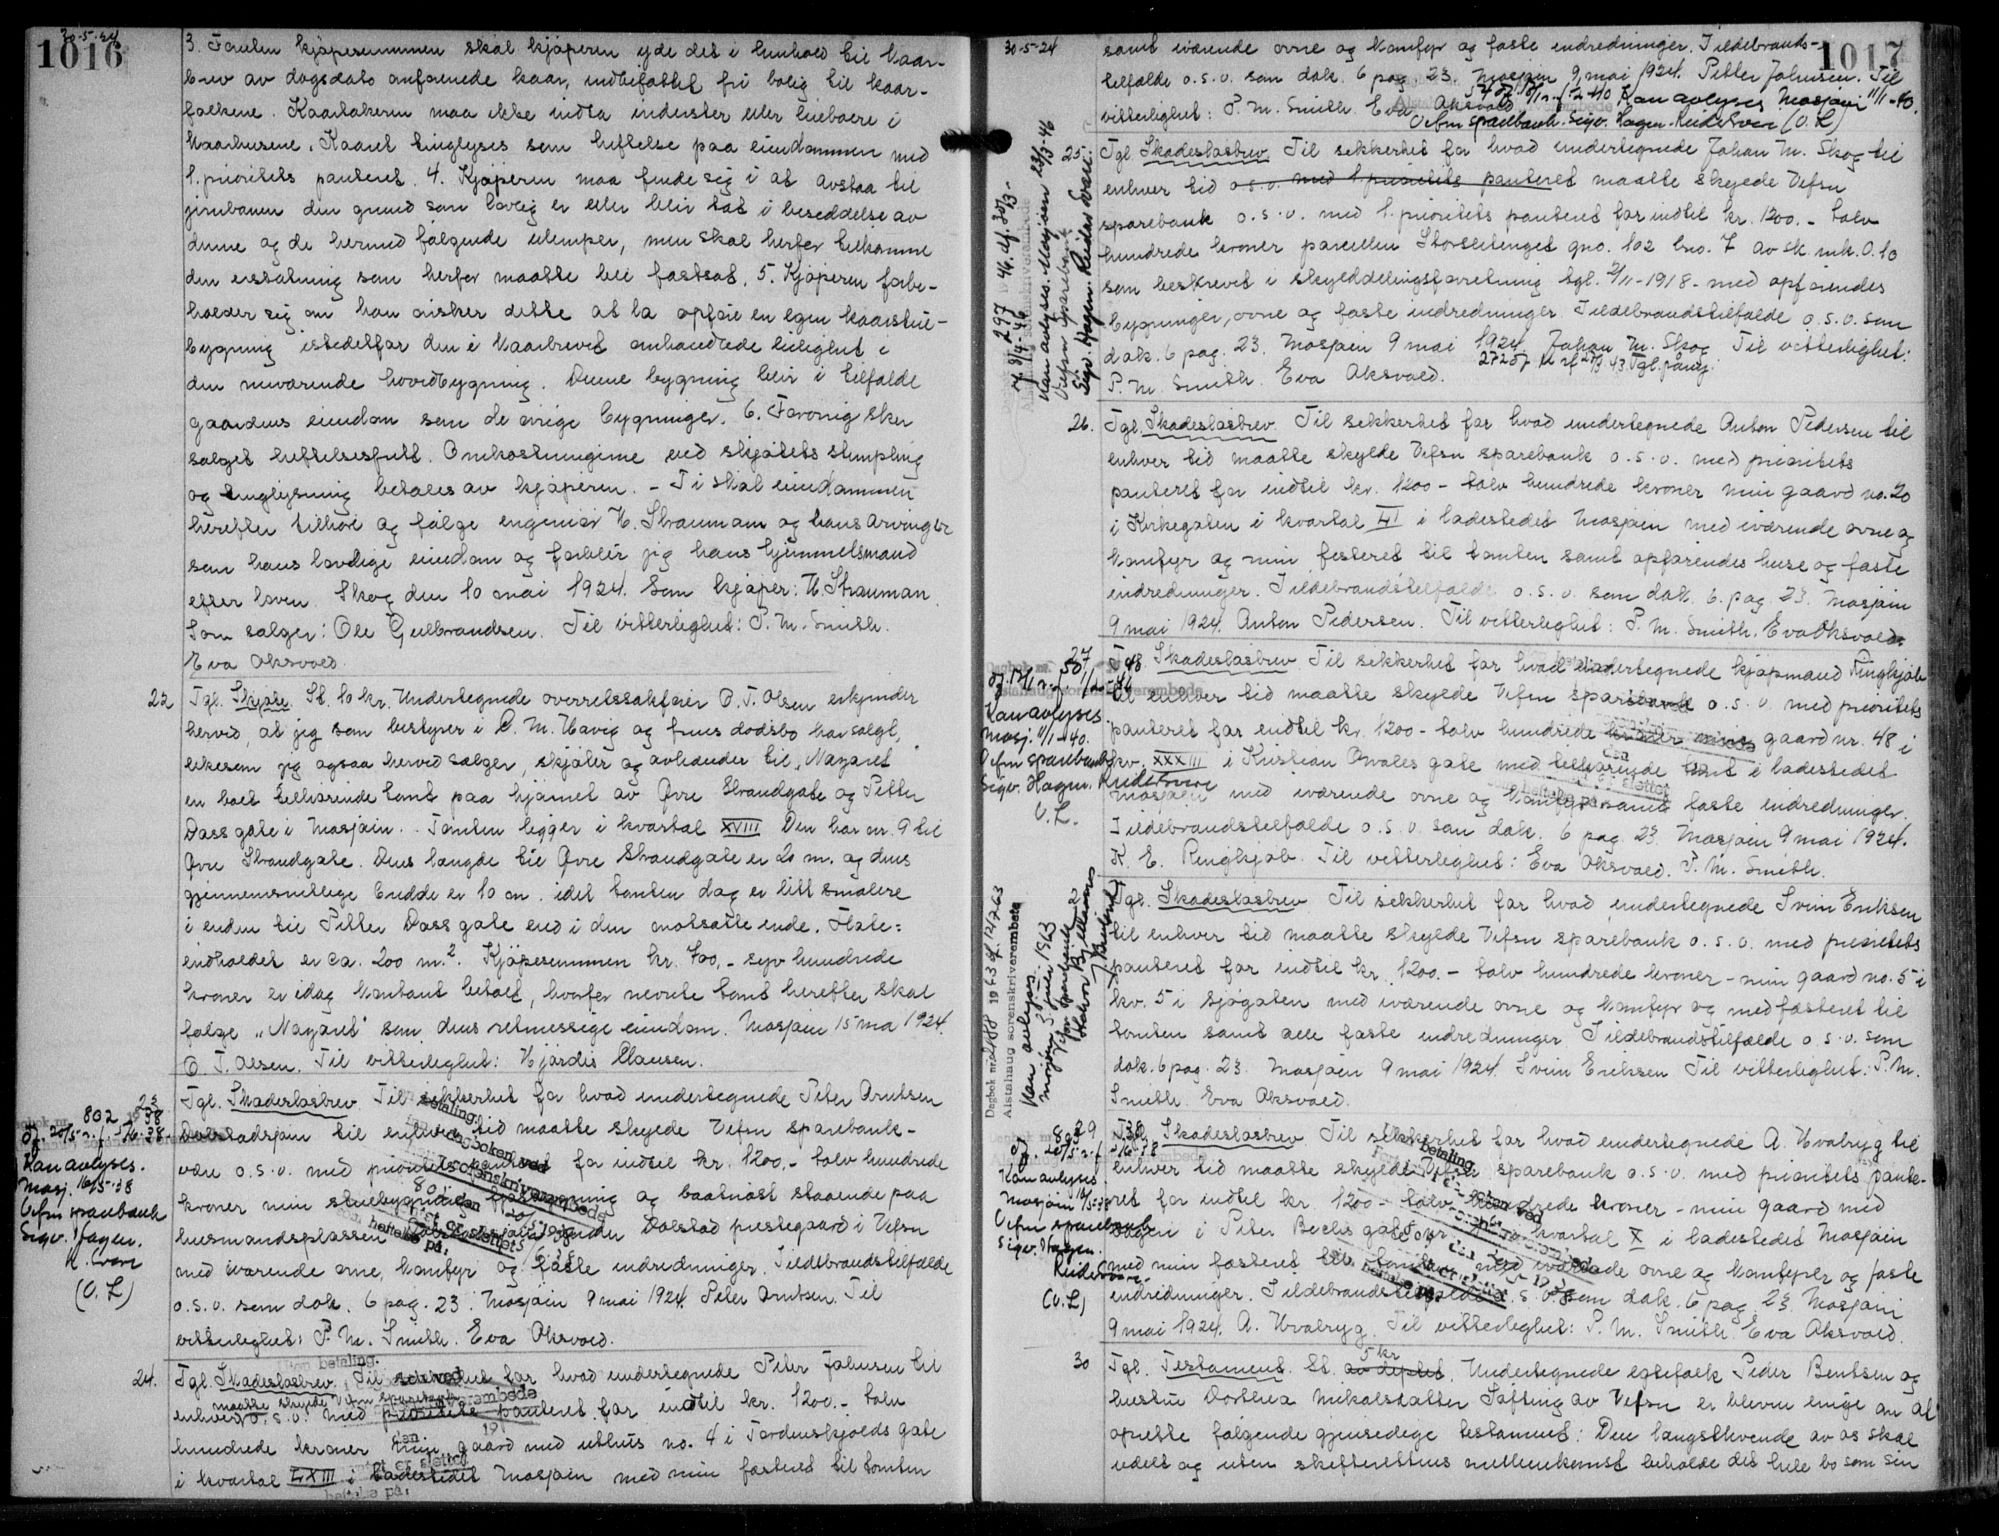 1016
30-5-24
3. Foruten kjøpesummen skal kjøperen yde det i henhold til kaar-
brev av dagsdato anførende kaar, indbefattet fri bolig til kaar-
folkene. Kaartakeren maa ikke indta inderster eller leieboere i
kaarhusene. Kaaret tinglyses som heftelse paa eiendommen med
1. prioritets panteret. 4. Kjøperen maa finde sig i at avstaa til
jernbanen den grund som lovlig er eller blir tat i besiddelse av
denne og de hermed følgende ulemper, men skal herfor tilkomme
den erstatning som herfor maatte bli fastsat. 5. Kjøperen forbe-
holder sig om han ønsker dette at la opføie en egen kaarstue-
bygning istedetfor den i kaarbrevet omhandlede leilighet i
den nuværende hovedbygning. Denne bygning blir i tilfælde
gaardens eiendom som de øvrige bygninger. 6. Forøvrig sker
salget heftelsesfrit. Omkostningerne ved skjøtets stempling
og tinglysning betales av kjøperen. - Ti skal eiendommen
herefter tilhøre og følge ingeniør H. Straumann og hans arvinger
som hans lovlige eiendom og forblir jeg hans hjemmelsmand
efter loven. Skog den 10 mai 1924. Som kjøper: H. Strauman.
Som sælger: Ole Gulbrandsen. Til vitterlighet: P. M. Smith.
Eva Aksvold.
22 Tgl. Skjøte St. 10 kr. Undertegnede overretssakfører O. T. Olsen erkjender
herved, at jeg som bestyrer i P. M. Havig og frues dødsbo har solgt,
likesom jeg ogsaa herved sælger, skjøter og avhænder til „Nazaret"
en boet tilhørende tomt paa hjørnet av Øvre Strandgate og Petter
Dass gate i Mosjøen. Tomten ligger i kvartal XVIII Den har nr. 9 til
Øvre Strandgate. Dens længde til Øvre Strandgate er 20 m. og dens
gjennemsnitlige bredde er 10 m. idet tomten dog er litt smalere
i enden til Petter Dass gate end i den motsatte ende. Flate-
indholdet er ca. 200 m². Kjøpesummen kr. 700,- syv hundrede
kroner er idag kontant betalt, hvorfor nevnte tomt herefter skal
følge „Nazaret" som dens retmessige eiendom. Mosjøen 15 mai 1924.
O. T. Olsen. Til vitterlighet: Hjørdis Clausen.
23
Tgl. Skadesløsbrev Til sikkerhet for hvad undertegnede Peter Arntsen
Dolstadsjøen til enhver tid maatte skylde Vefsn sparebank-
være o.s.v. med prioritets panteret for indtil kr. 1200,- tolv hundrede
kroner min stuebygning, fjøsbygning og baatnøst staaende paa
husmandsplassen under Dolstad prestegaard i Vefsn
med iværende ovne, komfyr og faste indredninger. Ildebrandstilfælde
o.s.v. som dok. 6 pag. 23. Mosjøen 9 mai 1924. Peter Arntsen. Til
vitterlighet: P. M. Smith. Eva Aksvold.
802 1938
Kan avlyses.
Mosj. 16/5-38
Vefsn sparebank
Sigv. Hagen.
(V. L)
24. Tgl. Skadesløsbrev Til sikkerhet for hvad undertegnede Peter Johnsen til
maatte skylde Vefsn sparebank
enhver o.s.v. med prioritets panteret for indtil kr. 1200,- tolv
hundrede kroner min gaard med uthus no. 4 i Tordenskjolds gate
i kvartal LXIII i ladestedet Mosjøen med min festeret til tomten
1017
30-5-24
samt iværende ovne og komfyr og faste indredninger. Ildebrands-
tilfælde o.s.v. som dok. 6 pag. 23. Mosjøen 9 mai 1924. Petter Johnsen. Til
vitterlighet: P. M. Smith. Eva Aksvold.
Kan avlyses Mosjøen 11/1-40.
Vefsn sparebank. Sigv. Hagen. (V. L)
25. Tgl. Skadesløsbrev Til sikkerhet for hvad undertegnede Johan M. Skog til
enhver tid o.s.v. med 1. prioritets panteret maatte skylde Vefsn
sparebank o.s.v. med 1. prioritets panteret for indtil kr. 1200,- tolv
hundrede kroner parcellen Storslettenget gno. 102 bno. 7 av sk. mk. 0.10
som beskrevet i skylddelingsforretning tgl. 2/11-1918 - med opførendes
bygninger, ovne og faste indredninger. Ildebrandstilfælde o.s.v. som
dok. 6 pag. 23. Mosjøen 9 mai 1924. Johan M. Skog Til vitterlighet:
P. M. Smith. Eva Aksvold.
Kan avlyses. Mosjøen 23/3-46
Vefsn sparebank
Sigv. Hagen. Reidar Svare.
26. Tgl. Skadesløsbrev Til sikkerhet for hvad undertegnede Anton Pedersen til
enhver tid maatte skylde Vefsn sparebank o.s.v. med prioritets
panteret for indtil kr. 1200 - tolv hundrede kroner min gaard no. 20
i Kirkegaten i kvartal LI i ladestedet Mosjøen med iværende ovne og
komfyr og min festeret til tomten samt opførendes huse og faste
indredninger. Ildebrandstilfælde o.s.v. som dok. 6. pag. 23. Mosjøen
9 mai 1924. Anton Pedersen. Til vitterlighet: P. M. Smith. Eva Aksvold.
27
Tgl. Skadesløsbrev Til sikkerhet for hvad undertegnede kjøpmand Ringkjøb
til enhver tid maatte skylde Vefsn sparebank o.s.v. med prioritets
panteret for indtil kr. 1200 - tolv hundrede kroner min gaard nr. 48 i
kv. XXXIII i Kristian Qvales gate med tilhørende tomt i ladestedet
Mosjøen med iværende ovne og komfyr samt faste indredninger.
Ildebrandstilfælde o.s.v. som dok. 6 pag. 23 Mosjøen 9 mai 1924.
K. E. Ringkjøb. Til vitterlighet: Eva Aksvold. P. M. Smith.
Kan avlyses
Mosj. 11/1-40.
Vefsn sparebank
Sigv. Hagen.
V. L.
Tgl. Skadesløsbrev Til sikkerhet for hvad undertegnede Svein Eriksen
til enhver tid maatte skylde Vefsn sparebank o.s.v. med prioritets
panteret for indtil kr. 1200.- tolv hundrede kroner - min gaard no. 5 i
kv. 5 i Sjøgaten med iværende ovne og komfyr og med festeret til
tomten samt alle faste indredninger Ildebrandstilfælde o.s.v. som
dok. 6 pag. 23. Mosjøen 9 mai 1924. Svein Eriksen Til vitterlighet: P. M.
Smith. Eva Aksvold.
Alstahaug sorenskriverembete
Kan avlyses
Mosjøen 5 juni 1963
29 Tgl. Skadesløsbrev Til sikkerhet for hvad undertegnede A. Hvalryg til
enhver tid maatte skylde Vefsn sparebank o.s.v. med prioritets pante-
ret for indtil kr. 1200 - tolv hundrede kroner - min gaard med
i Peter Bechs gate kvartal X i ladestedet Mosjøen
med min festeret til tomten med iværende ovne og komfyrer og faste
indredninger. Ildebrandstilfælde o.s.v. som dok. 6 pag. 23 Mosjøen
9 mai 1924. A. Hvalryg. Til vitterlighet: P. M. Smith. Eva Aksvold.
Kan avlyses
Mosjøen 16/5-38
Vefsn sparebank
Sigv. Hagen.
(V. L)
30 Tgl. Testament. St. 5 kr. Undertegnede egtefolk Peder Bentsen og
hustru Dorthea Mikalsdatter Søfting av Vefsn er blevne enige om at
oprette følgende gjensidige testament: Den længstlevende av os skal
udelt og uten skifterettens mellemkomst beholde det hele bo som sin